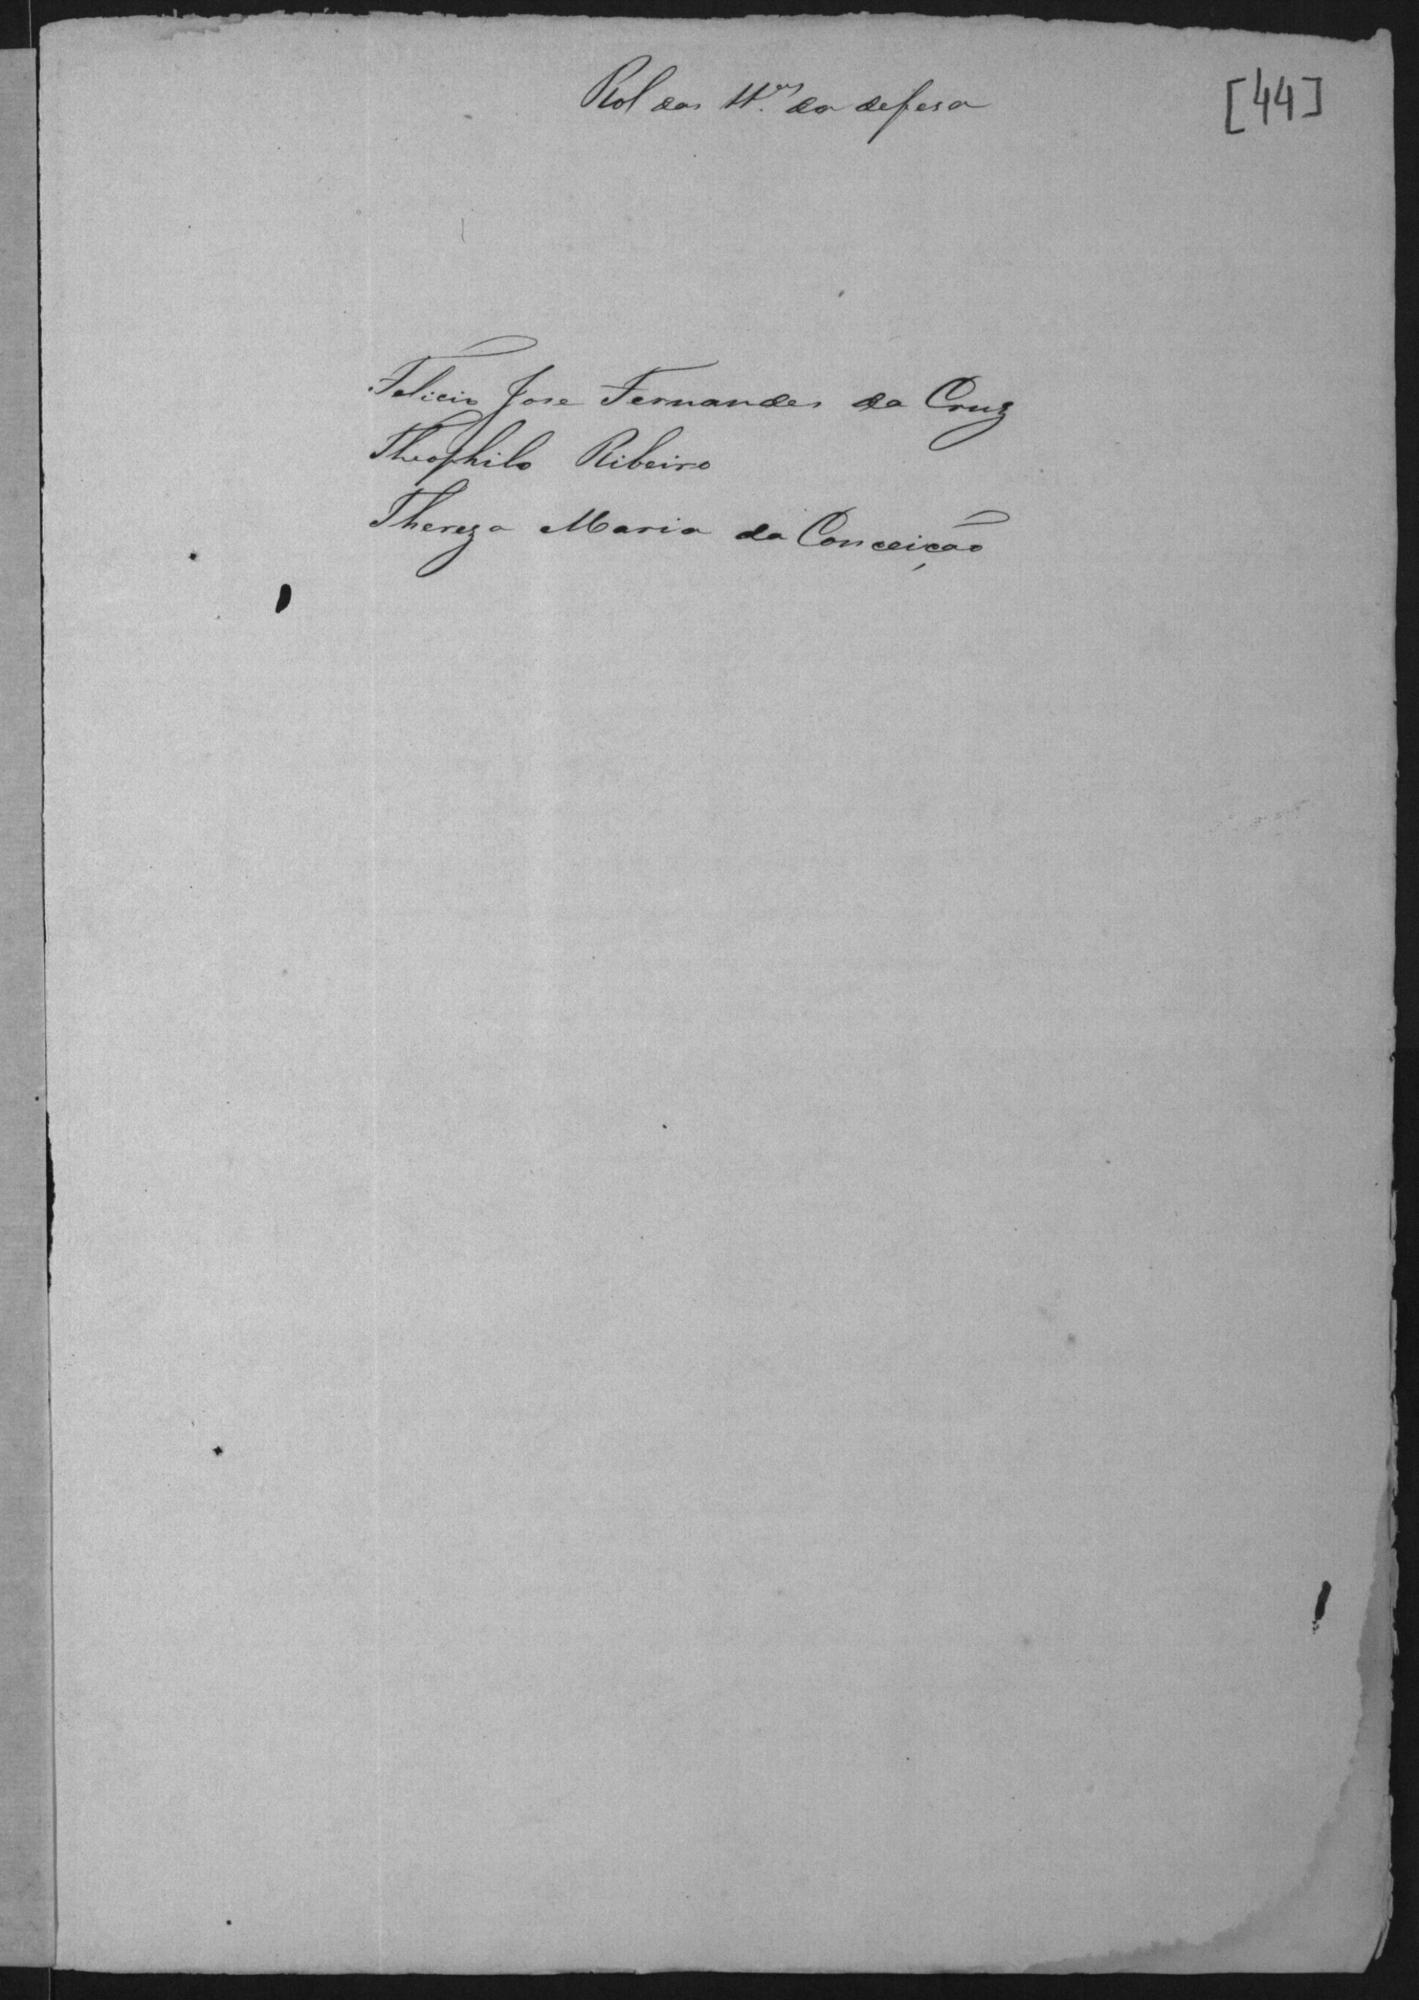 Rol das tt.as da defesa
[44]
Felicio Jose Fernandes da Cruz
Theophilo Ribeiro
Thereza Maria da Conceição